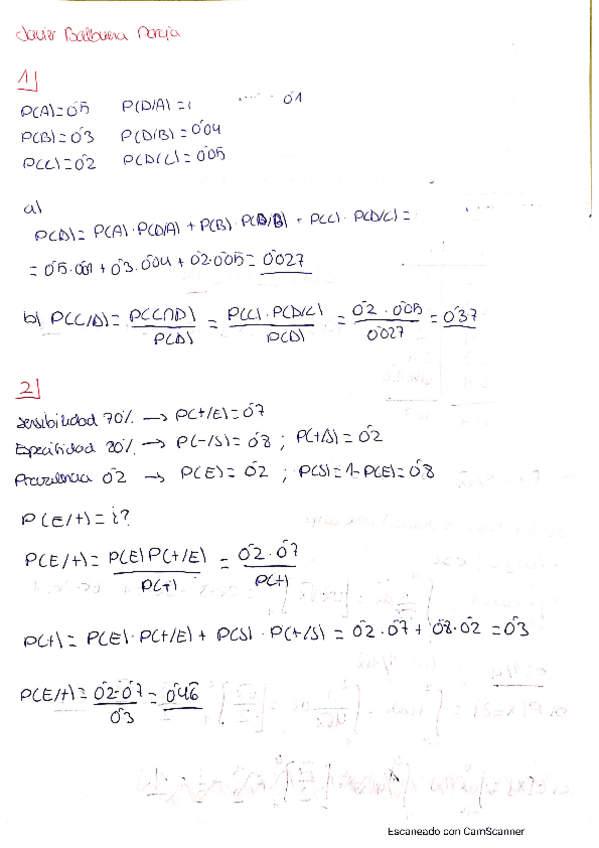 Javier Balbuena Pareja
1)
P(A)=0'5 P(D/A)= 0'01
P(B)=0'3 P(D/B)=0'04
P(C)=0'2 P(D/C)=0'05
a)
P(D)= P(A)·P(D/A) + P(B)·P(D/B) + P(C)·P(D/C)=
= 0'5·0'01 + 0'3·0'04 + 0'2·0'05 = 0'027
b) P(C/D)= P(C∩D)/P(D) = P(C)·P(D/C)/P(D) = 0'2·0'05/0'027 = 0'37
2)
Sensibilidad 70% → P(+/E)=0'7
Especifidad 80% → P(-/S)=0'8 ; P(+/S)=0'2
Prevalencia 0'2 → P(E)=0'2 ; P(S)=1-P(E)=0'8
P(E/+)=¿?
P(E/+)= P(E)P(+/E)/P(+) = 0'2·0'7/P(+)
P(+)= P(E)·P(+/E) + P(S)·P(+/S) = 0'2·0'7 + 0'8·0'2 = 0'3
P(E/+)= 0'2·0'7/0'3 = 0'46
Escaneado con CamScanner